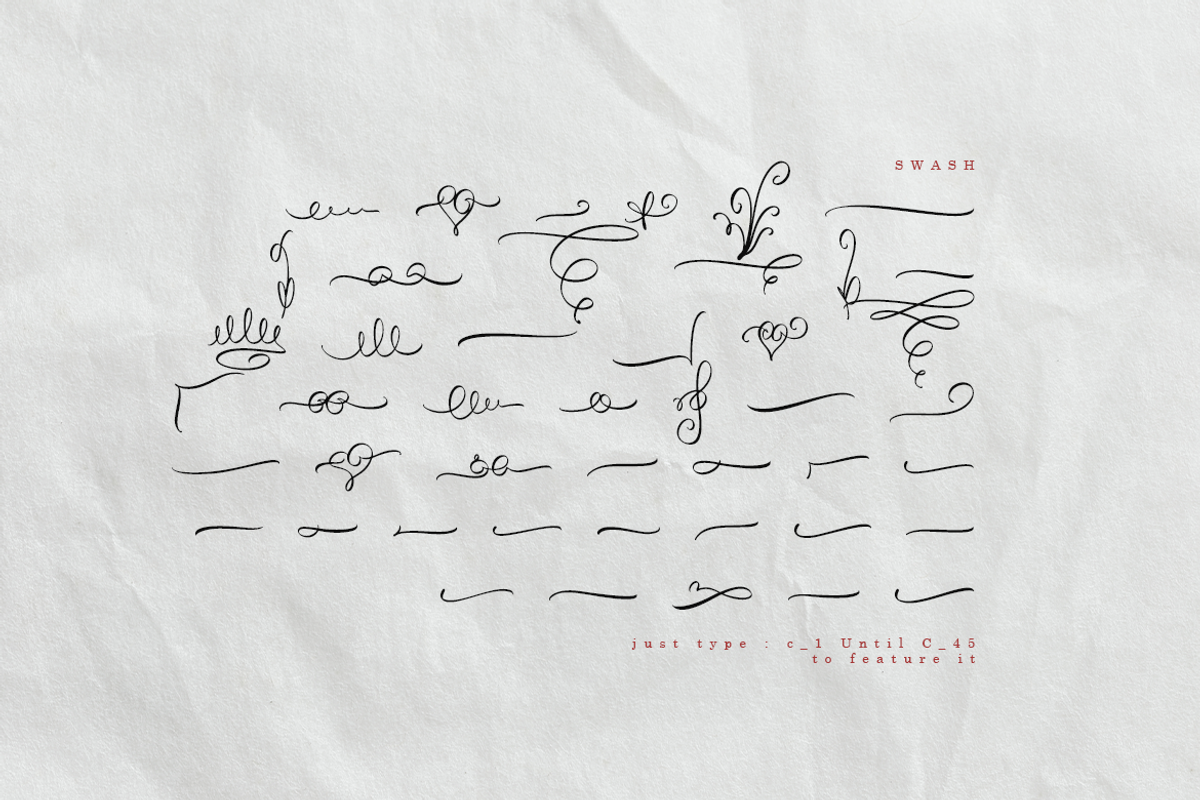 SWASH
just type : c_1 Until C_45
to feature it